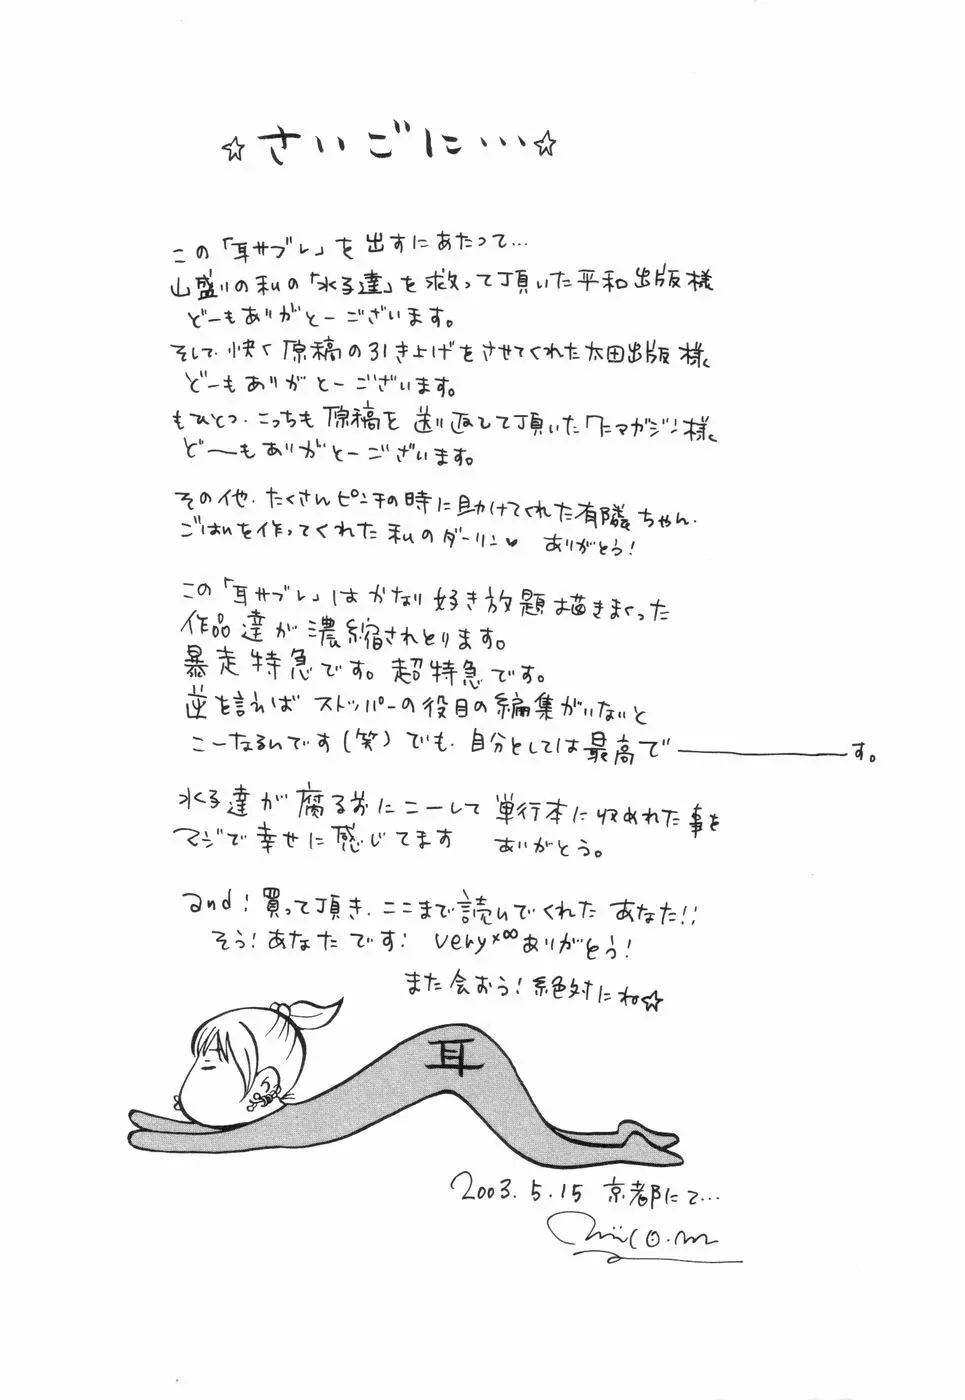 ☆さいごに...☆
この「耳サブレ」を出すにあたって...
山盛りの私の「水子達」を救って頂いた平和出版様
どーもありがとーございます。
そして、快く原稿の引き上げをさせてくれた太田出版様、
どーもありがとーございます。
もひとつ、こっちも原稿を送り返して頂いたワニマガジン様、
ど——もありがとーございます。
その他、たくさんピンチの時に助けてくれた有隣ちゃん、
ごはんを作ってくれた私のダーリン♥ ありがとう!
この「耳サブレ」はかなり好き放題描きまくった
作品達が濃縮されとります。
暴走特急です。超特急です。
逆を言えば ストッパーの役目の編集がいないと
こーなるんです(笑)でも、自分としては最高で————す。
水子達が腐るまえにこーして単行本に収められた事を
マジで幸せに感じてます ありがとう。
and! 買って頂き、ここまで読んでくれた あなた!!
そう! あなたです! very×∞ありがとう!
また会おう! 絶対にね☆
耳
2003.5.15 京都にて...